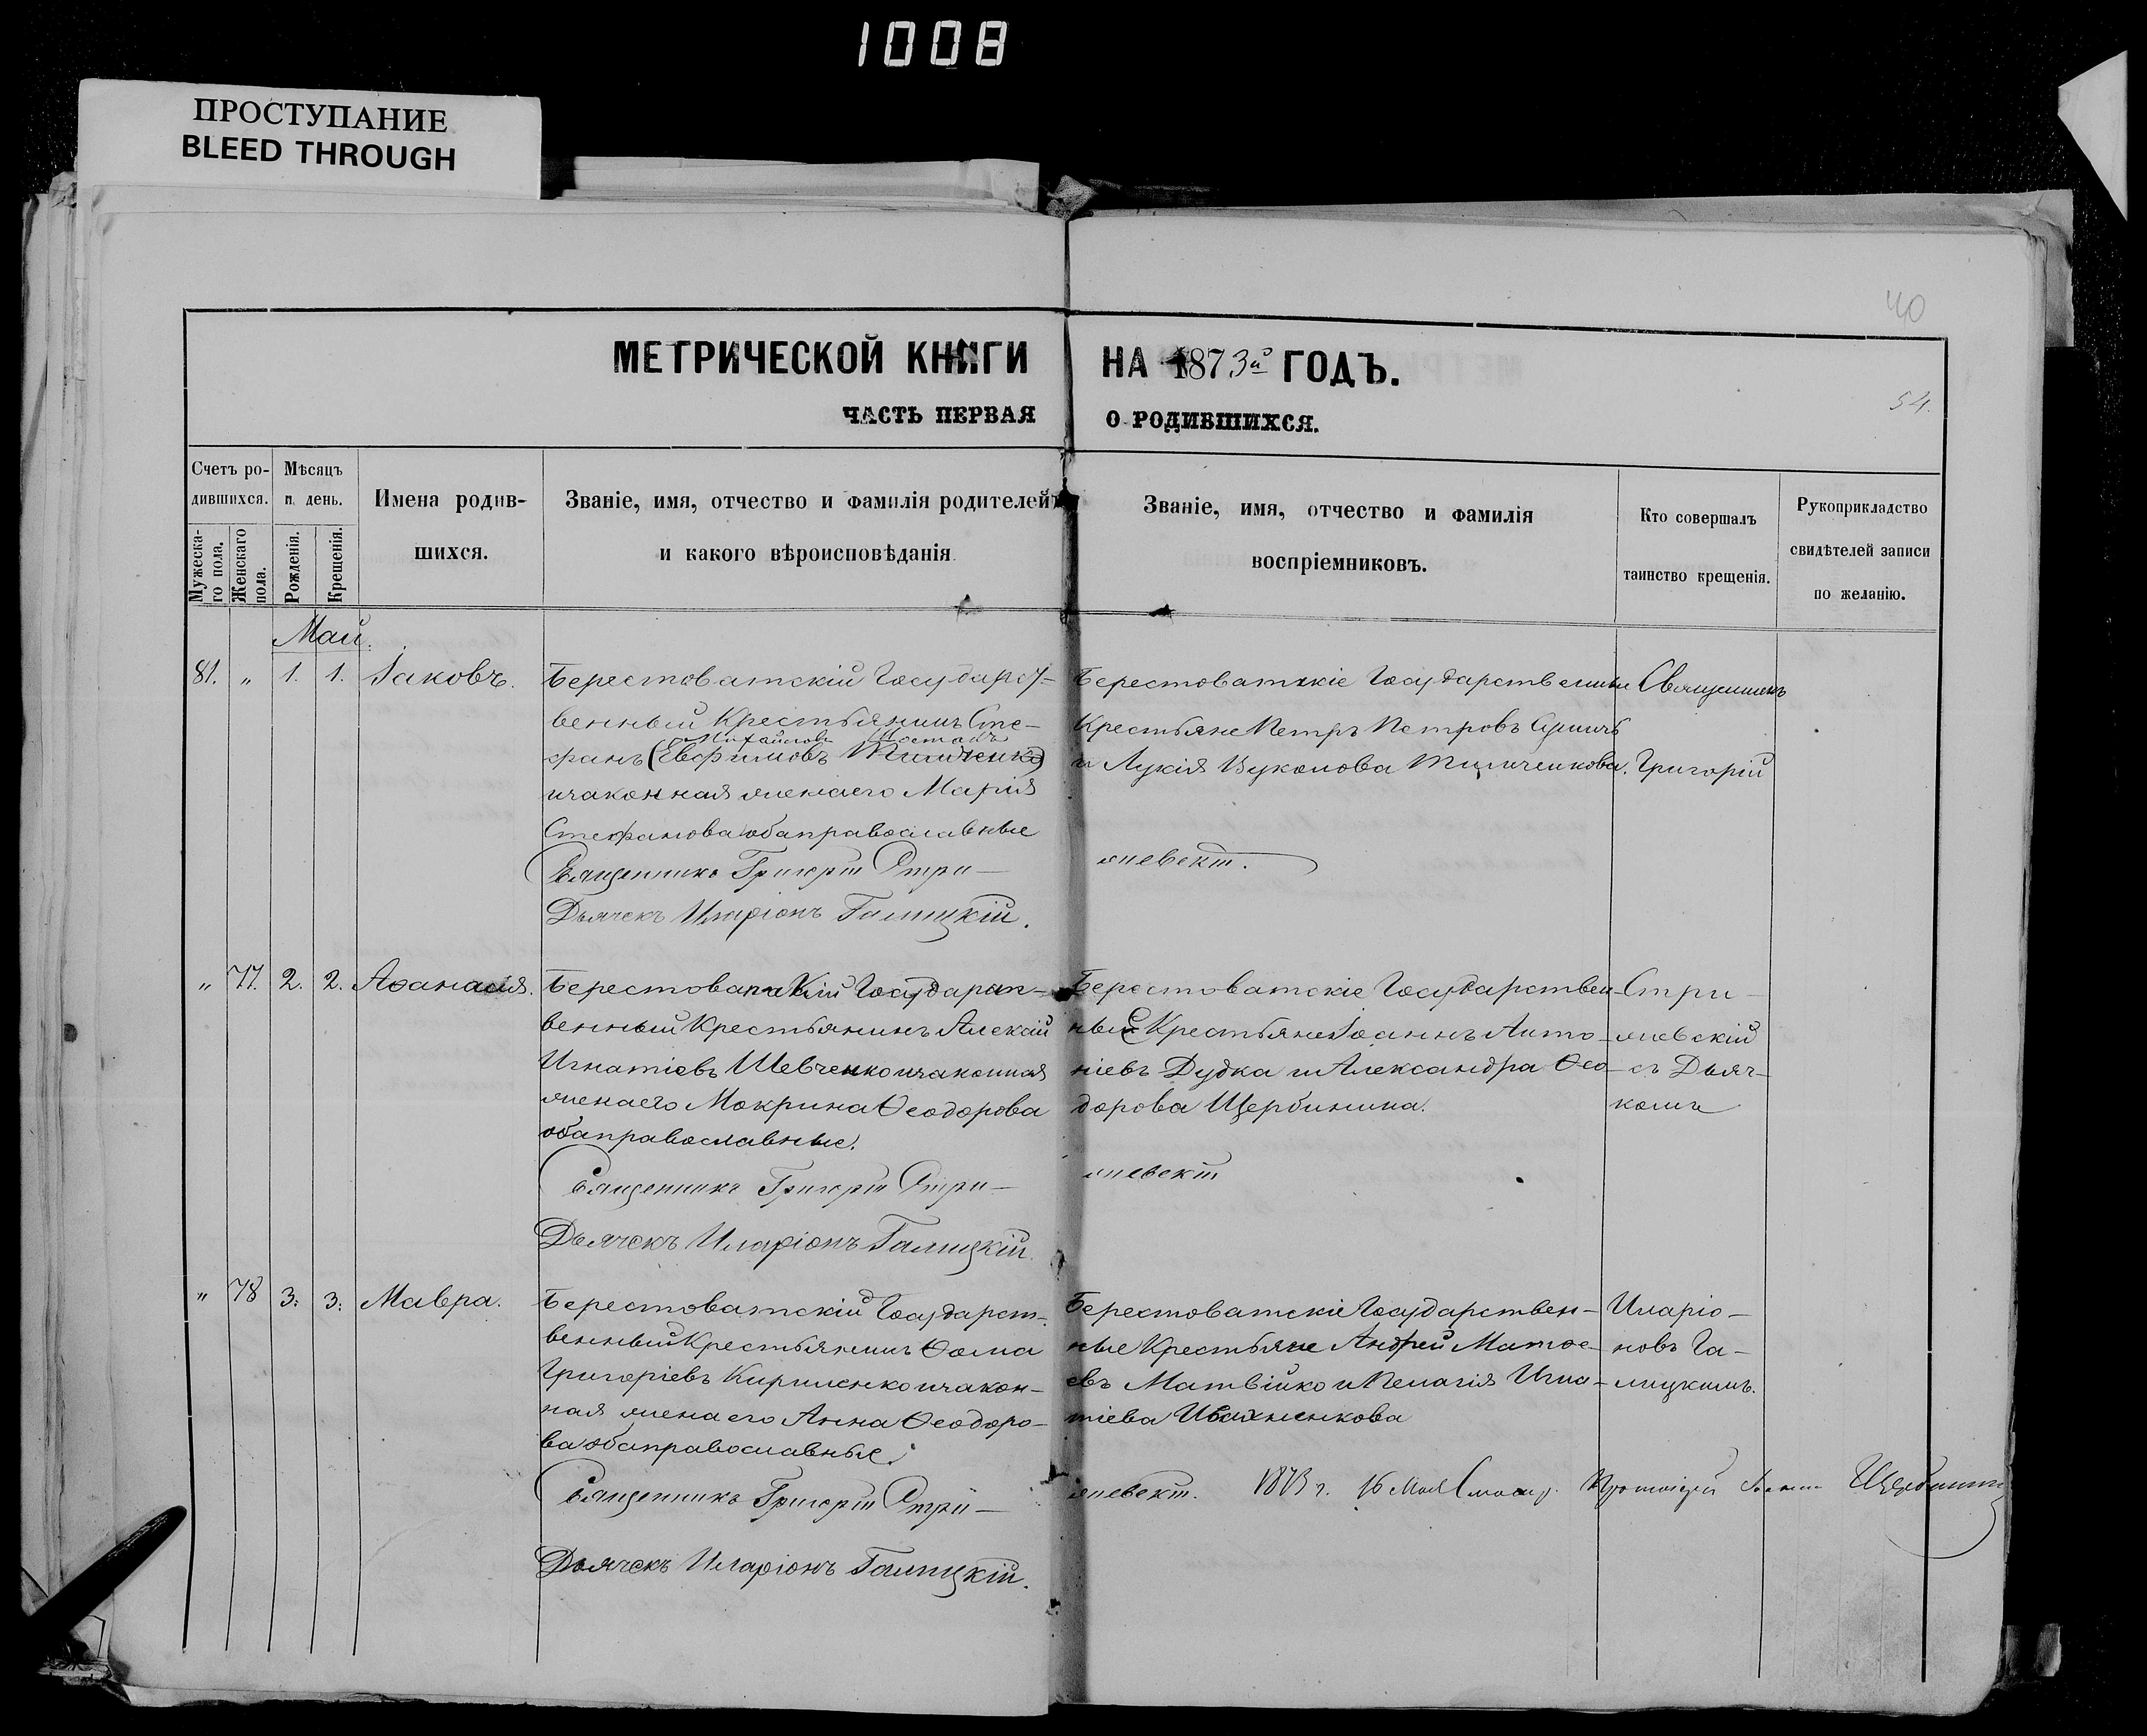 1008
ПРОСТУПАНИЕ
BLEED THROUGH
40
МЕТРИЧЕСКОЙ КНИГИ НА 1873й ГОДЪ.
54.
ЧАСТЬ ПЕРВАЯ О РОДИВШИХСЯ.
Счетъ ро-
дившихся.
Мужеска-
го пола.
Женскаго
пола.
Мѣсяцъ
и день.
Рожденія.
Крещенія.
Имена родив-
шихся.
Званіе, имя, отчество и фамилія родителей,
и какого вѣроисповѣданія.
Званіе, имя, отчество и фамилія
воспріемниковъ.
Кто совершалъ
таинство крещенія.
Рукоприкладство
свидѣтелей записи
по желанію.
Май.
81. „ 1. 1. Іаковъ.
Берестоватскій Государст-
венный Крестьянинъ Сте-
Михайловъ Шостакъ
фанъ (Евфимовъ Тимченко)
и законная жена его Марія
Стефанова оба православные
Священникъ Григорій Стри-
жевскій.
Дьячекъ Иларіонъ Галицкій.
Берестоватскіе Государственные
Крестьяне Петръ Петровъ
и Лукія Вуколова Тимченкова.
Священникъ
Григорій
„ 77. 2. 2. Аѳанасія.
Берестоватскій Государст-
венный Крестьянинъ Алексій
Игнатіевъ Шевченко и законная
жена его Макрина Ѳеодорова
оба православные.
Священникъ Григорій Стри-
жевскій
Дьячекъ Иларіонъ Галицкій.
Берестоватскіе Государствен-
ные Крестьяне Іоаннъ Анто-
ніевъ Дудка и Александра Ѳео-
дорова Щербинина.
Стри-
жевскій
съ Дьяч-
комъ
„ 78 3. 3. Мавра.
Берестоватскій Государст-
венный Крестьянинъ Ѳома
Григоріевъ Кириленко и закон-
ная жена его Анна Ѳеодоро-
ва оба православные.
Священникъ Григорій Стри-
жевскій.
Дьячекъ Иларіонъ Галицкій.
Берестоватскіе Государствен-
ные Крестьяне Андрей Матѳе-
евъ Матвійко и Пелагія Игна-
тіева Ивахненкова
Иларіо-
номъ Га-
лицкимъ.
1873 г. 16 Мая Протоіерей Щербинин